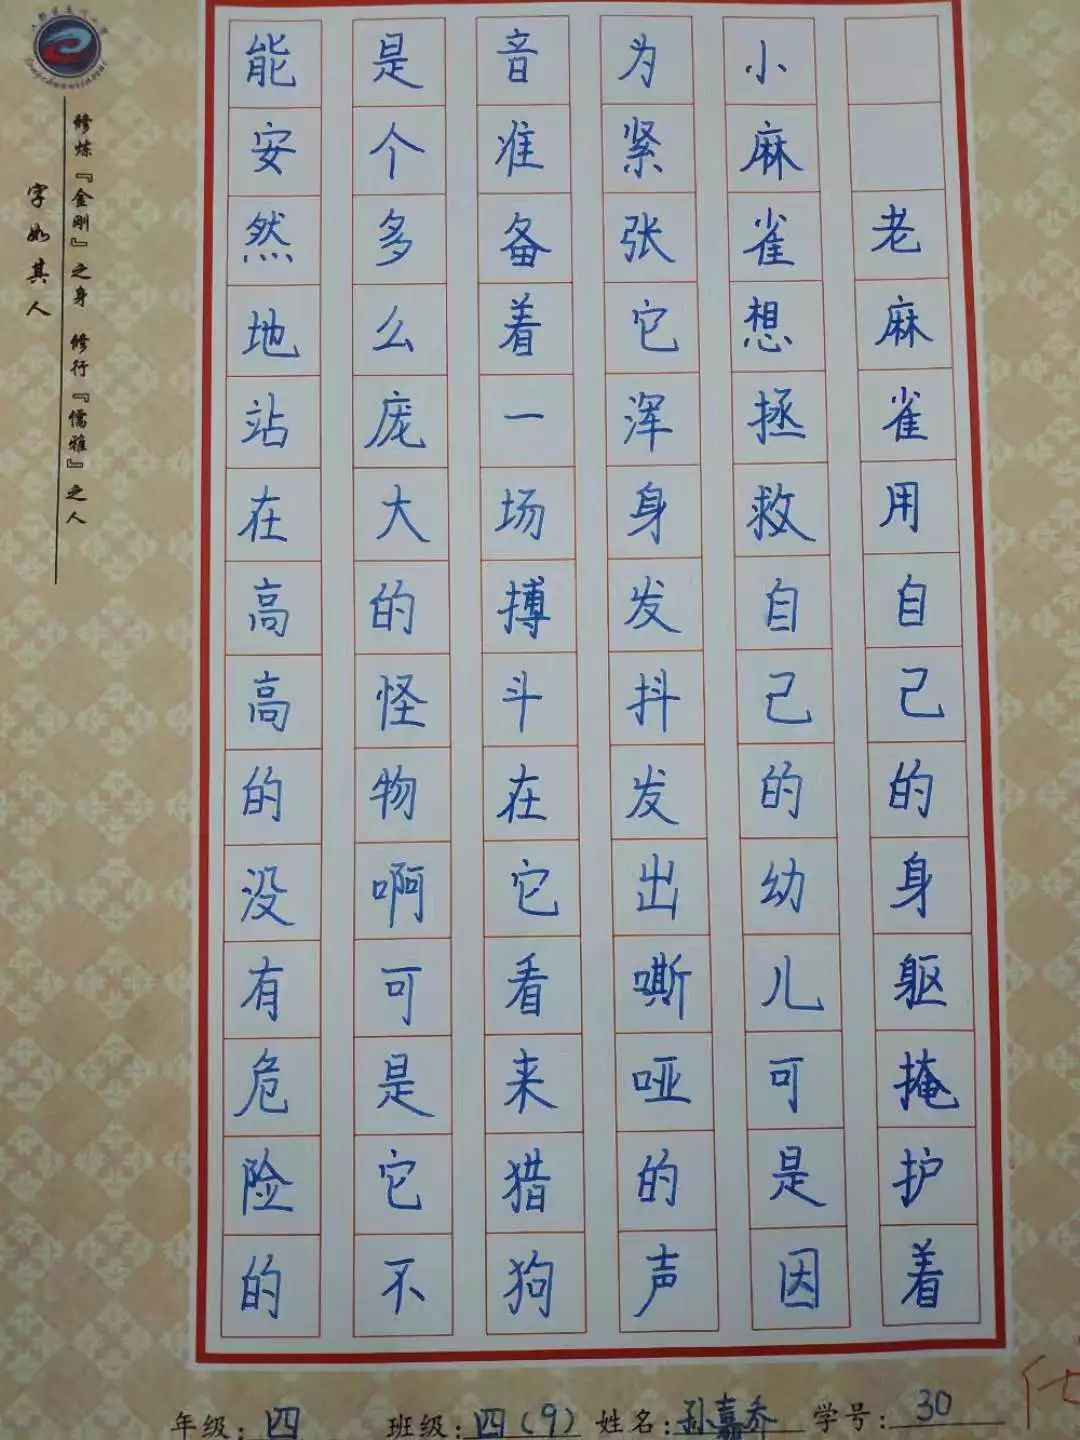 老麻雀用自己的身躯掩护着
小麻雀想拯救自己的幼儿可是因
为紧张它浑身发抖发出嘶哑的声
音准备着一场搏斗在它看来猎狗
是个多么庞大的怪物啊可是它不
能安然地站在高高的没有危险的
修炼『金刚』之身 修行『儒雅』之人
字如其人
年级:四 班级:四(9) 姓名:孙嘉乔 学号:30